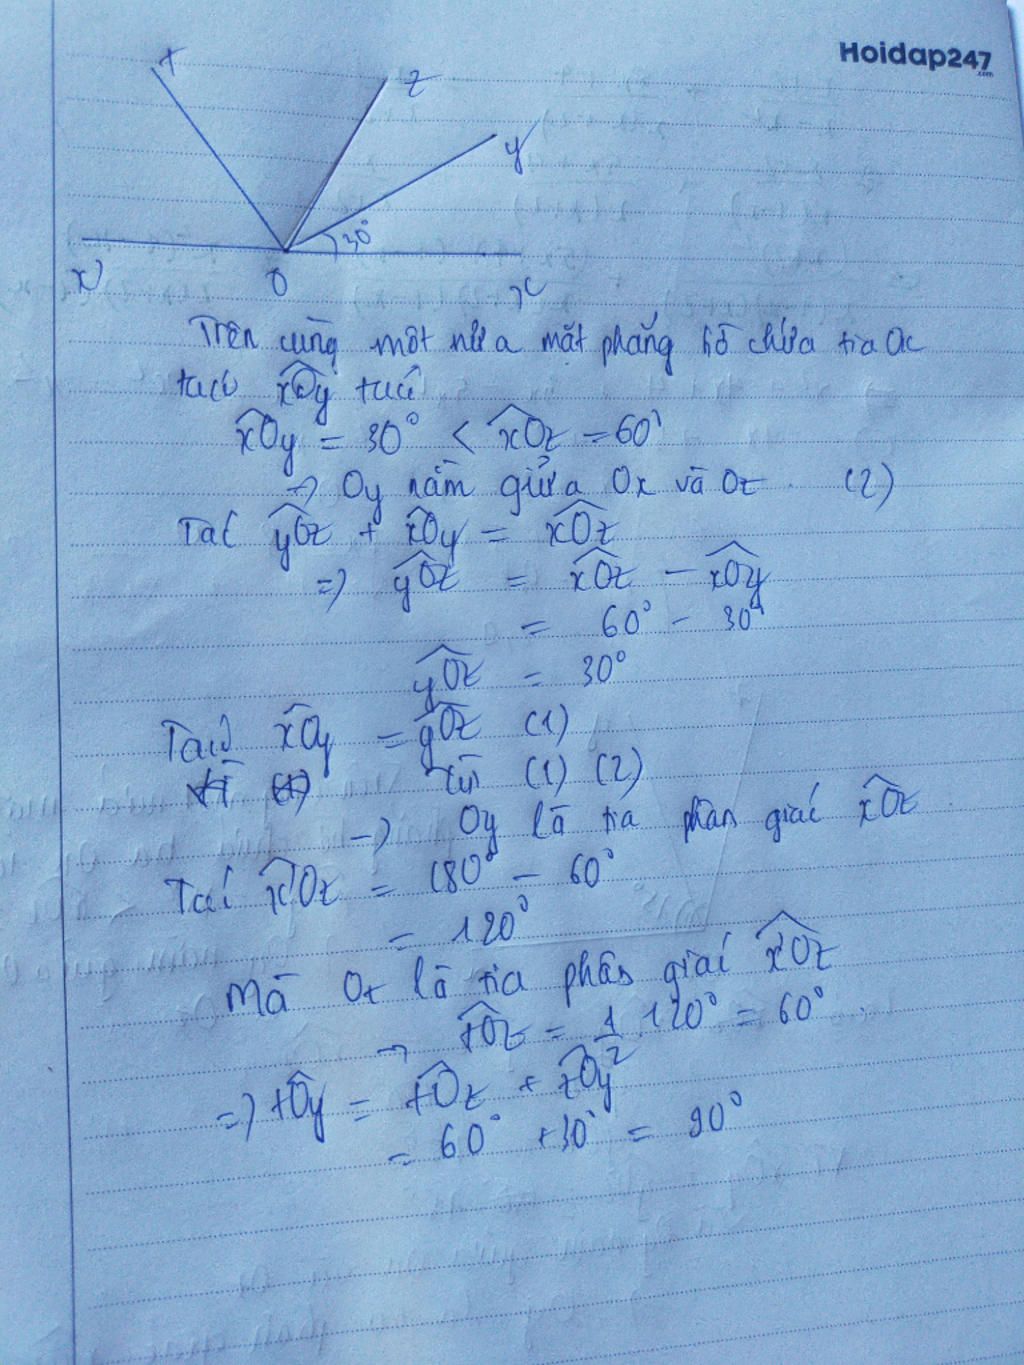 Hoidap247
.com
t
z
y
30°
x'
O
x
Trên cùng một nửa mặt phẳng bờ chứa tia Ox
xOy
xOy = 30° < xOz = 60°
→ Oy nằm giữa Ox và Oz (2)
Tac yOz + xOy = xOz
=> yOz = xOz - xOy
= 60° - 30°
yOz = 30°
xOy = yOz (1)
từ (1) (2)
→ Oy là tia phân giác xOz
x'Oz = 180° - 60°
= 120°
Mà Ot là tia phân giác x'Oz
→ tOz = 1/2 120° = 60°
=> tOy = tOz + zOy
= 60° + 30° = 90°